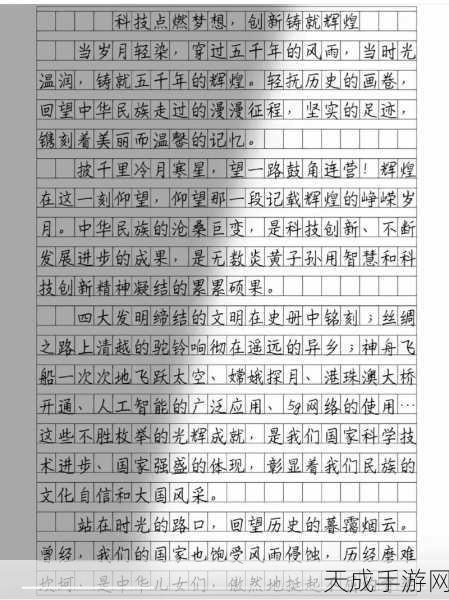 科技点燃梦想，创新铸就辉煌
当岁月轻染，穿过五千年的风雨，当时光
温润，铸就五千年的辉煌。轻抚历史的画卷，
回望中华民族走过的漫漫征程，坚实的足迹，
镌刻着美丽而温馨的记忆。
披千里冷月寒星，望一路鼓角连营！辉煌
在这一刻仰望，仰望那一段记载辉煌的峥嵘岁
月。中华民族的沧桑巨变，是科技创新、不断
发展进步的成果，是无数炎黄子孙用智慧和科
技创新精神凝结的累累硕果。
四大发明缔结的文明在史册中铭刻；丝绸
之路上清越的驼铃响彻在遥远的异乡；神舟飞
船一次次地飞跃太空、嫦娥探月、港珠澳大桥
开通、人工智能的广泛应用、5g网络的使用…
这些不胜枚举的光辉成就，是我们国家科学技
术进步、国家强盛的体现，彰显着我们民族的
文化自信和大国风采。
站在时光的路口，回望历史的暮霭烟云。
曾经，我们的国家也饱受风雨侵蚀，历经磨难
坎坷，是中华儿女们，傲然地挺起
天成手游网